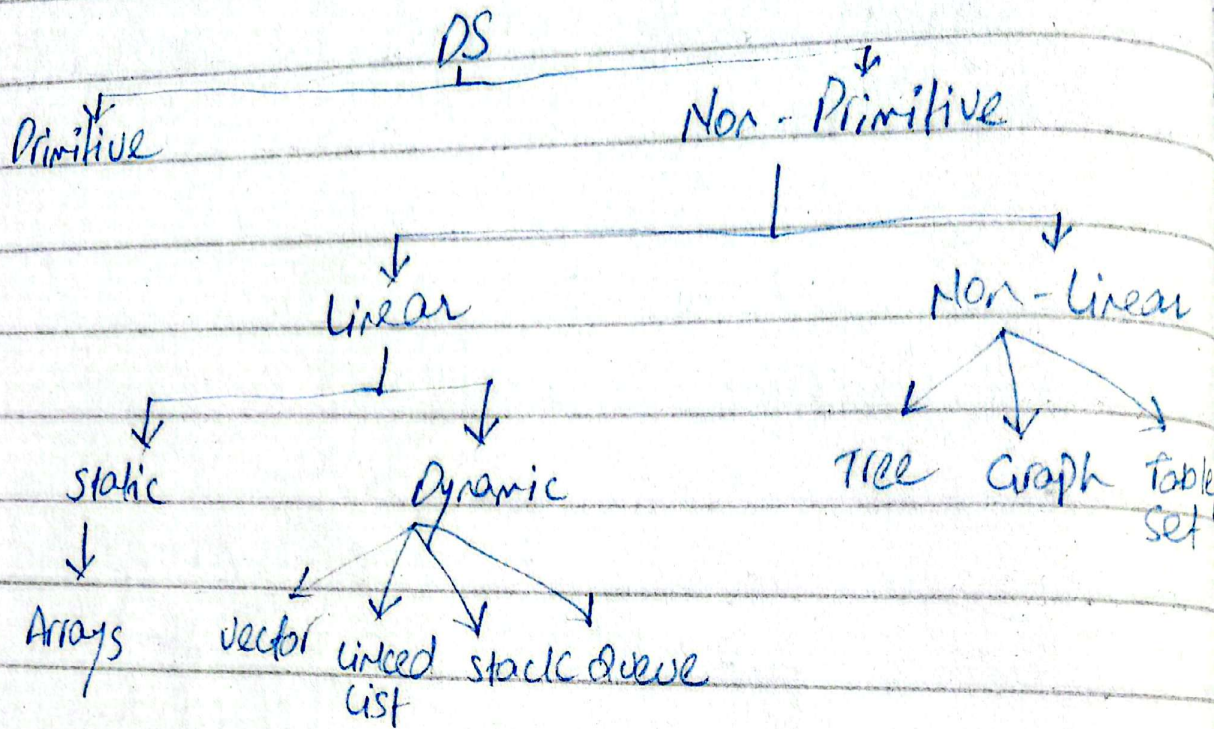 DS
Primitive
Non-Primitive
Linear
Non-Linear
Static
Dynamic
Tree
Graph
Table
Set
Arrays
Vector
Linked
List
Stack
Queue